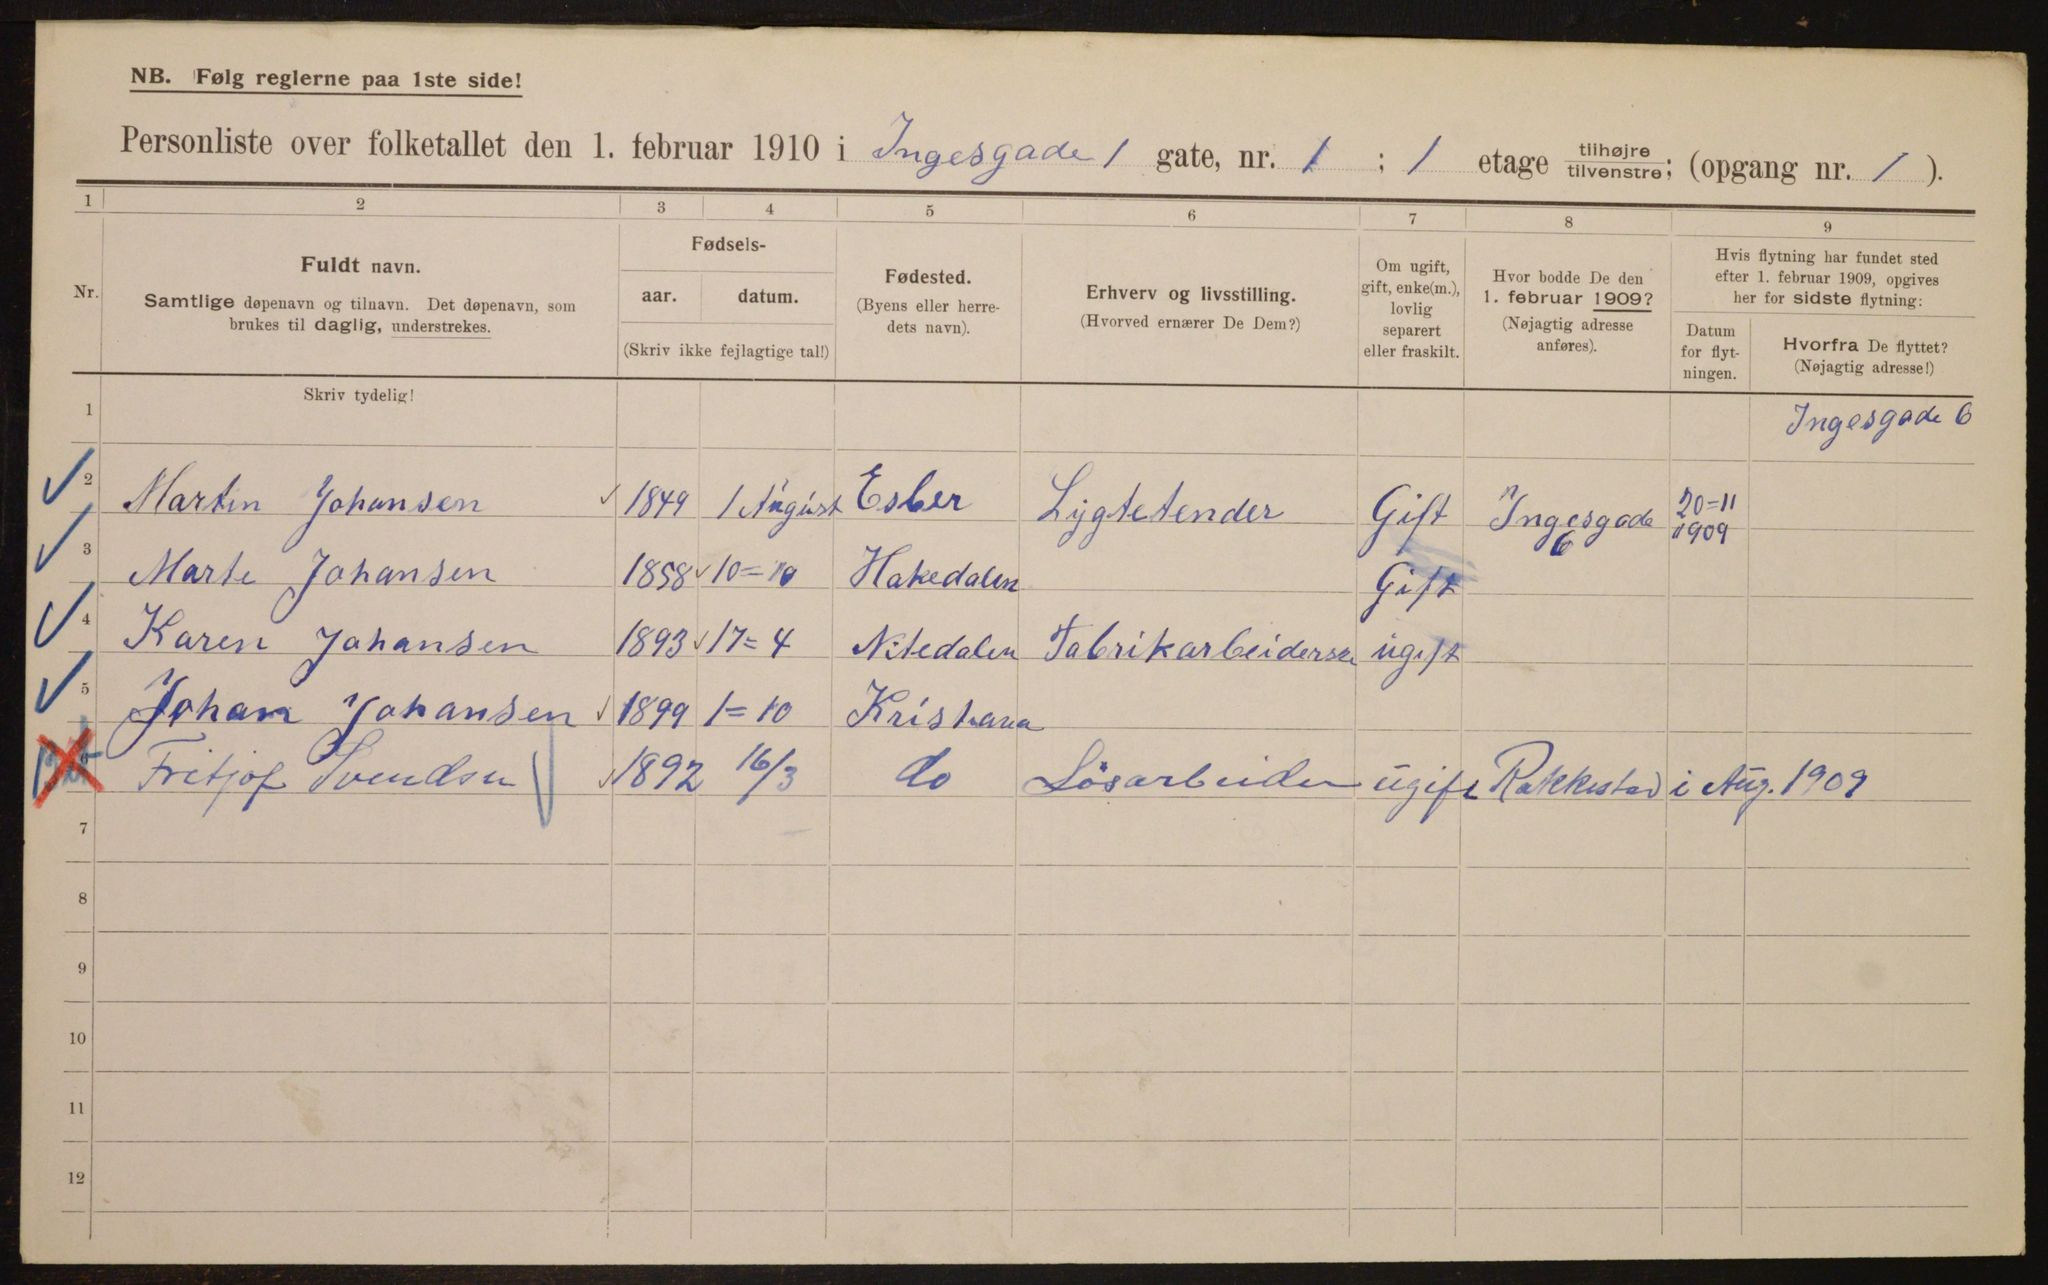 NB. Følg reglerne paa 1ste side!
Personliste over folketallet den 1. februar 1910 i Ingesgade 1 gate, nr. 1 ; 1 etage tilhøjre tilvenstre; (opgang nr. 1 ).
1 2 3 4 5 6 7 8 9
Nr.
Fuldt navn.
Samtlige døpenavn og tilnavn. Det døpenavn, som
brukes til daglig, understrekes.
Fødsels-
aar. datum.
(Skriv ikke fejlagtige tal!)
Fødested.
(Byens eller herre-
dets navn).
Erhverv og livsstilling.
(Hvorved ernærer De Dem?)
Om ugift,
gift, enke(m.),
lovlig
separert
eller fraskilt.
Hvor bodde De den
1. februar 1909?
(Nøjagtig adresse
anføres).
Hvis flytning har fundet sted
efter 1. februar 1909, opgives
her for sidste flytning:
Datum
for flyt-
ningen.
Hvorfra De flyttet?
(Nøjagtig adresse!)
Skriv tydelig!
1 Ingesgade 6
2 Martin Johansen 1849 1 August Esber Lygtetender Gift Ingesgade 6 20=11 1909
3 Marte Johansen 1858 10=10 Hakedalen Gift
4 Karen Johansen 1893 17=4 Nitedalen Fabrikarbeiderske ugift
5 Johan Johansen 1899 1=10 Kristiania
6 Fritjof Svendsen 1892 16/3 do Lösarbeider ugift Rakkestad i Aug. 1909
7
8
9
10
11
12